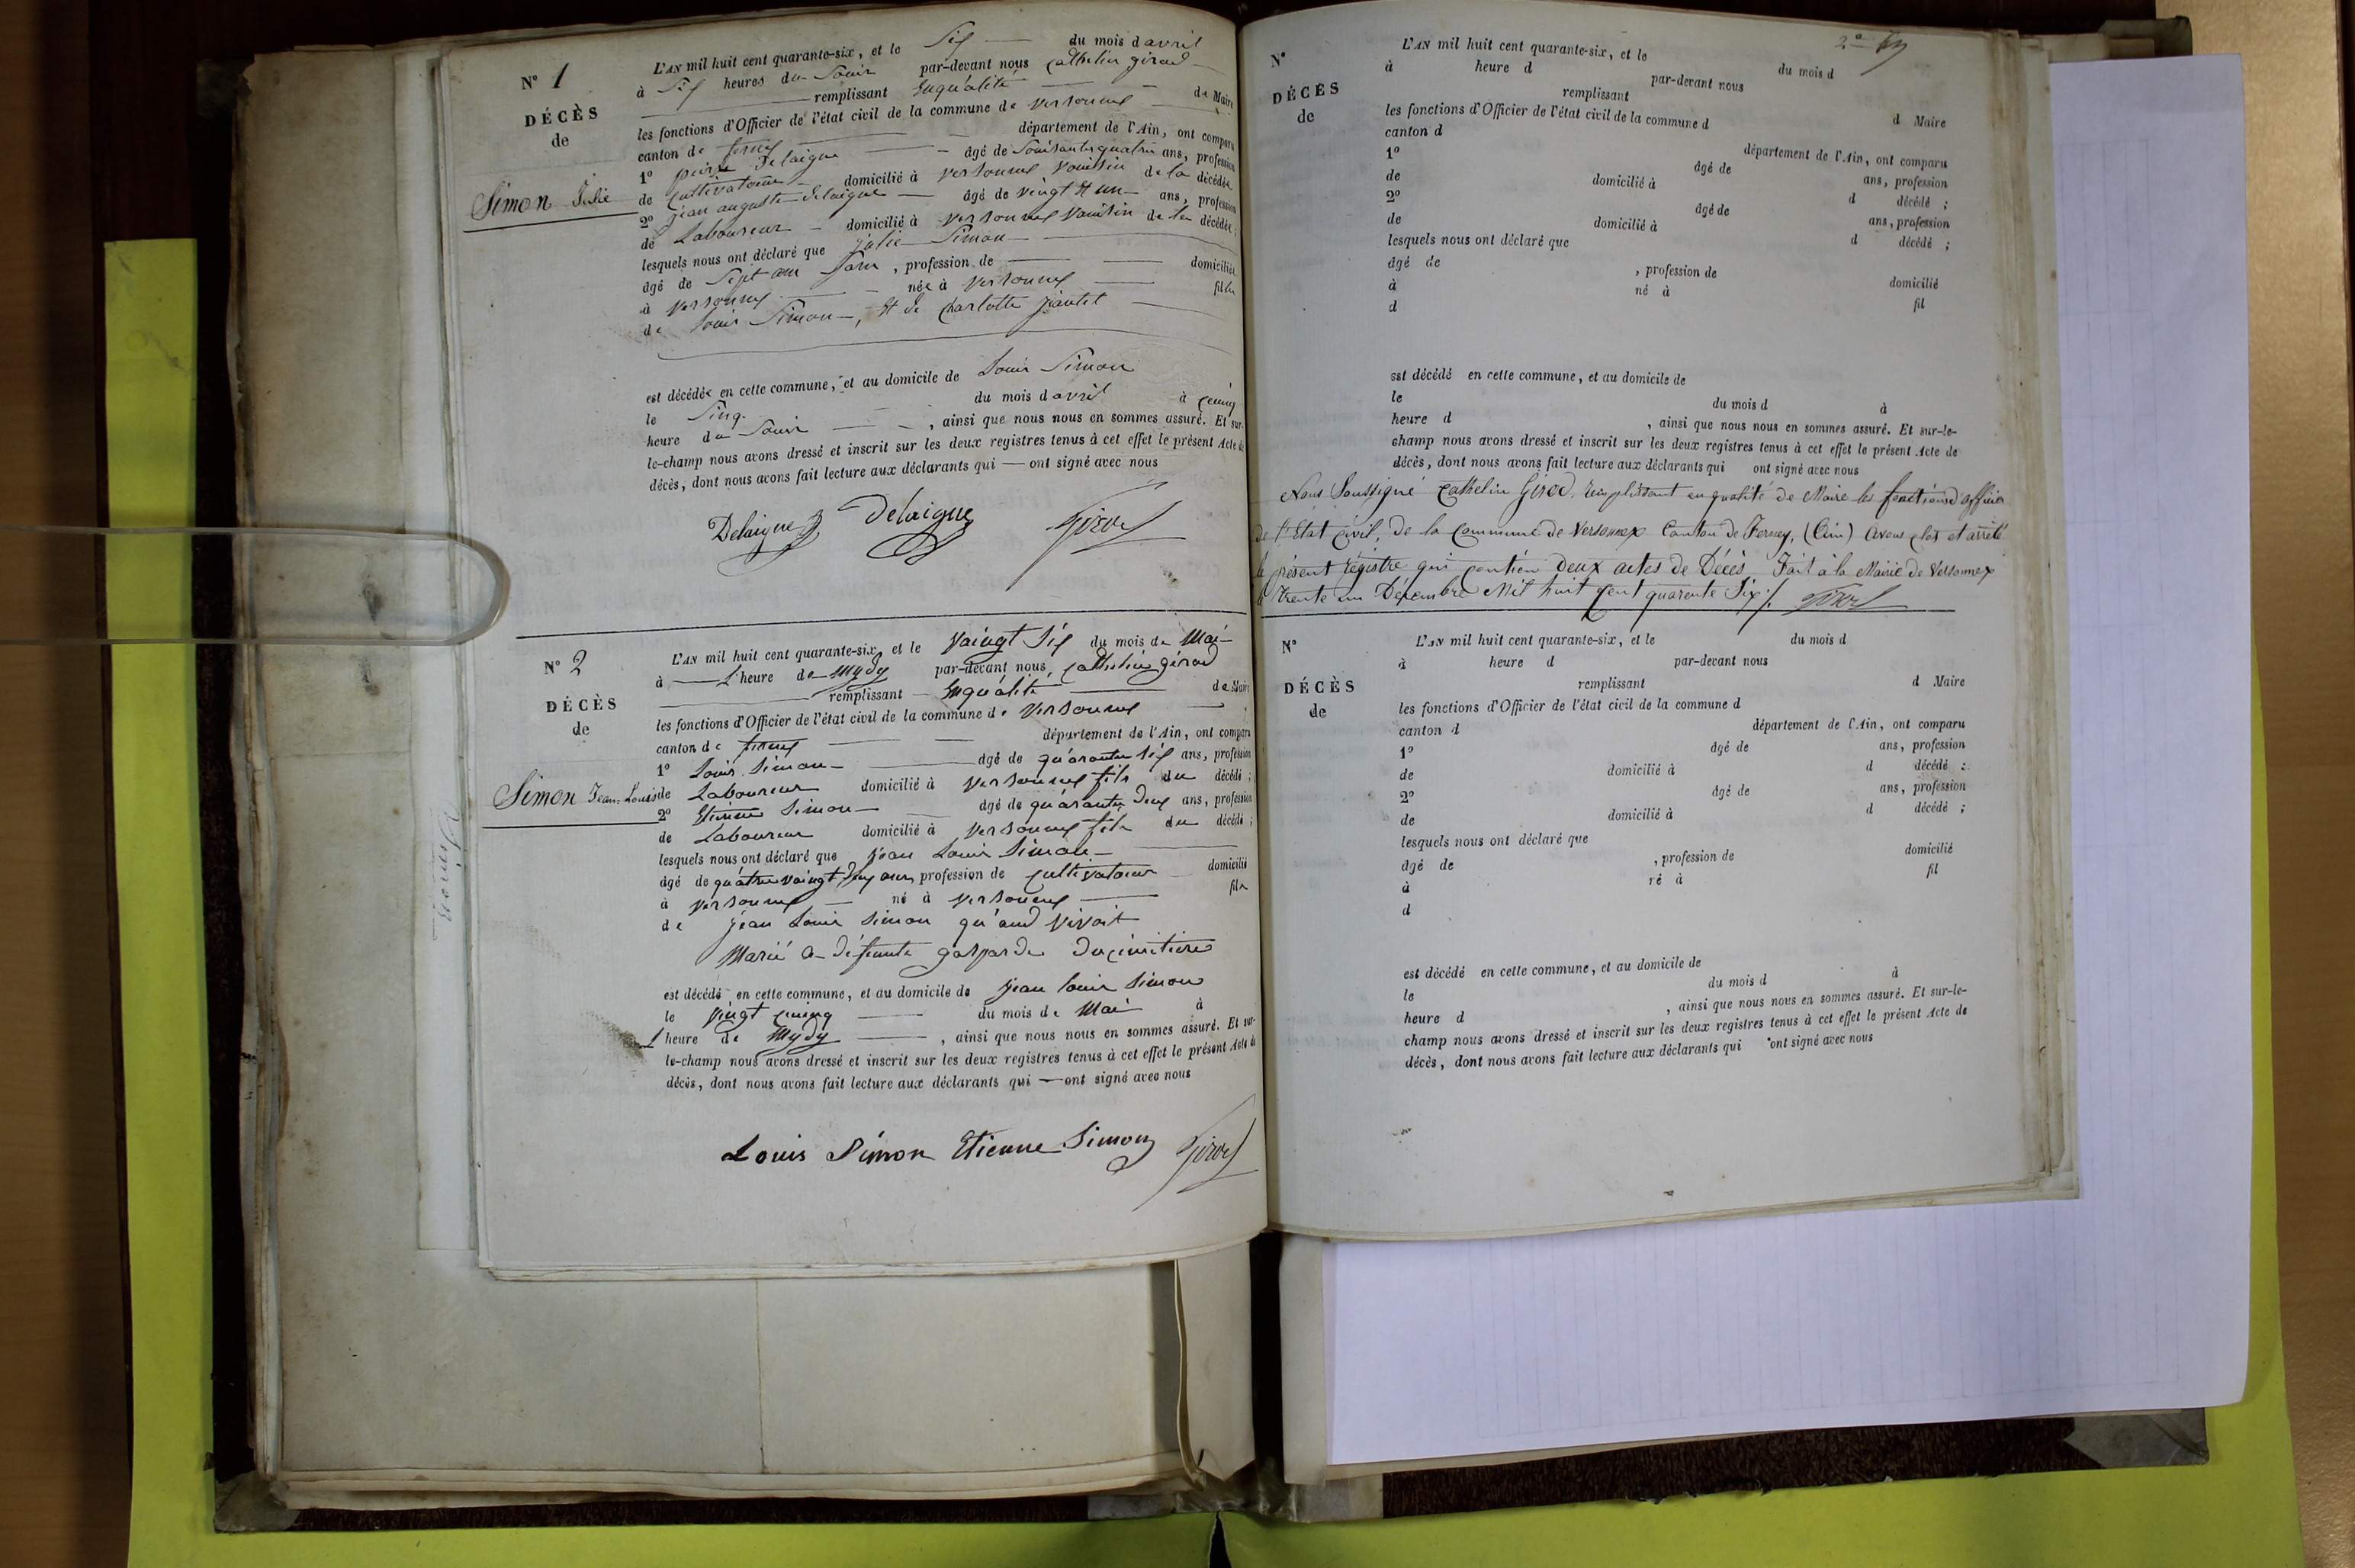 N° 1
DÉCÈS
de
Simon Julie
L'AN mil huit cent quarante-six, et le Six du mois d avril
à Six heures du Soir par-devant nous Cathelin girod
remplissant Enqualité de Maire
les fonctions d'Officier de l'état civil de la commune de Versonnex
canton de ferney département de l'Ain, ont comparu
1° pierre Delaigue âgé de Soixantequatre ans, profession
de Cultivateur domicilié à Versonnex Voisin de la décédée
2° jean auguste Delaigue âgé de Vingt et un ans, profession
de Laboureur domicilié à Versonnex Voisin de la décédée ;
lesquels nous ont déclaré que julie Simon
âgé de Sept ans , profession de domiciliée
à Versonnex née à Versonnex fille
de Louis Simon, et de Charlotte
est décédée en cette commune, et au domicile de Louis Simon
le Sinq du mois d avril à
heure du Soir , ainsi que nous nous en sommes assuré. Et sur-
le-champ nous avons dressé et inscrit sur les deux registres tenus à cet effet le présent Acte de
décès, dont nous avons fait lecture aux déclarants qui — ont signé avec nous
Delaigue Delaigue Girod
N° 2
DÉCÈS
de
Simon Jean-Louis
L'AN mil huit cent quarante-six, et le Vaingt Six du mois de Mai
à L'heure de Mydy par-devant nous Cathelin girod
remplissant Enqualité de Maire
les fonctions d'Officier de l'état civil de la commune de Versonnex
canton de ferney département de l'Ain, ont comparu
1° Louis Simon âgé de quarante Six ans, profession
de Laboureur domicilié à Versonnex fils du décédé ;
2° Etienne Simon âgé de quarante Deux ans, profession
de Laboureur domicilié à Versonnex fils du décédé ;
lesquels nous ont déclaré que jean Louis Simon
âgé de quatre vaingt Deux ans, profession de Cultivateur domicilié
à Versonnex né à Versonnex fils
de jean Louis Simon qu'and vivoit
Marié a défunte gasparde Ducimitiere
est décédé en cette commune, et au domicile de jean Louis Simon
le Vingt Cuinq du mois de Mai à
1 heure de Mydy , ainsi que nous nous en sommes assuré. Et sur-
le-champ nous avons dressé et inscrit sur les deux registres tenus à cet effet le présent Acte de
décès, dont nous avons fait lecture aux déclarants qui — ont signé avec nous
Louis Simon Etienne Simon Girod
N°
DÉCÈS
de
L'AN mil huit cent quarante-six, et le du mois d
à heure d par-devant nous
remplissant d Maire
les fonctions d'Officier de l'état civil de la commune d
canton d département de l'Ain, ont comparu
1° âgé de ans, profession
de domicilié à d décédé ;
2° âgé de ans, profession
de domicilié à d décédé ;
lesquels nous ont déclaré que
âgé de , profession de domicilié
à né à fil
d
est décédé en cette commune, et au domicile de
le du mois d à
heure d , ainsi que nous nous en sommes assuré. Et sur-le-
champ nous avons dressé et inscrit sur les deux registres tenus à cet effet le présent Acte de
décès, dont nous avons fait lecture aux déclarants qui ont signé avec nous
Nous Soussigné Cathelin Girod, remplissant en qualité de Maire les fonctions d'officier
de l'Etat Civil, de la Commune de Versonnex Canton de Ferney, (Ain) avons clos et arrêté
le présent régistre qui contien deux actes de Décès Fait à la Mairie de Versonnex
le trente un Décembre Mil huit Cent quarante Six ⁒ Girod
N°
DÉCÈS
de
L'AN mil huit cent quarante-six, et le du mois d
à heure d par-devant nous
remplissant d Maire
les fonctions d'Officier de l'état civil de la commune d
canton d département de l'Ain, ont comparu
1° âgé de ans, profession
de domicilié à d décédé ;
2° âgé de ans, profession
de domicilié à d décédé ;
lesquels nous ont déclaré que
âgé de , profession de domicilié
à né à fil
d
est décédé en cette commune, et au domicile de
le du mois d à
heure d , ainsi que nous nous en sommes assuré. Et sur-le-
champ nous avons dressé et inscrit sur les deux registres tenus à cet effet le présent Acte de
décès, dont nous avons fait lecture aux déclarants qui ont signé avec nous